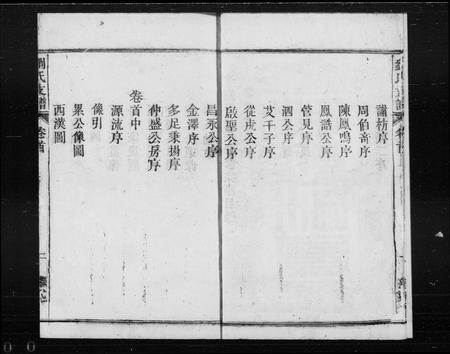 蕭枋序
周伯奇序
陳鳳鳴序
鳳誥公序
管見序
泗公序
艾千子序
從虎公序
啟聖公序
昌永公序
金澤序
多足秉揚序
仲盛公房序
卷首中
源流序
像引
累公像圖
西漢圖
劉氏支譜
卷首
二